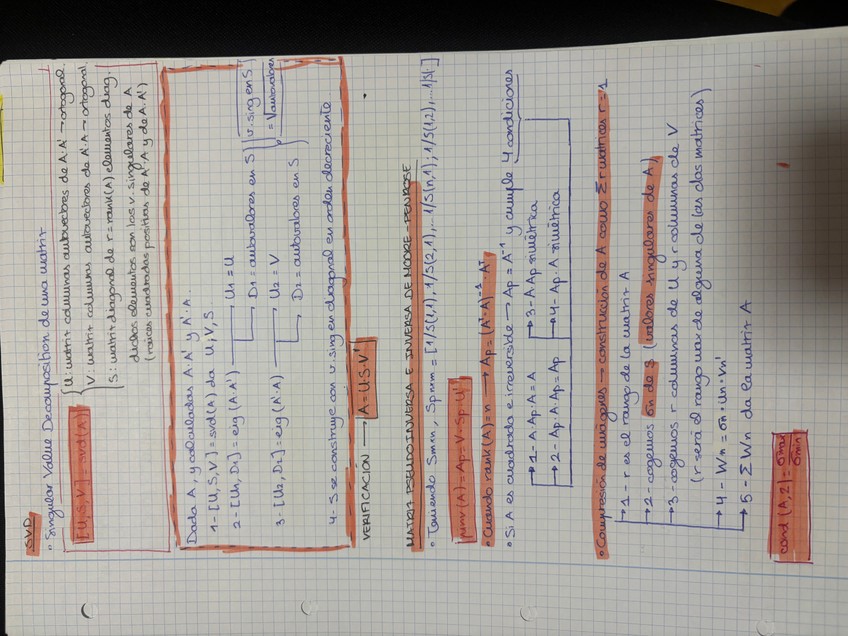 SVD
• Singular Value Decomposition de una matriz
[U,S,V] = svd(A)
U: matriz columnas autovectores de A·A' → ortogonal.
V: matriz columnas autovectores de A'·A → ortogonal.
S: matriz diagonal de r=rank(A) elementos diag.
dichos elementos son los v. singulares de A
(raíces cuadradas positivas de A'·A y de A·A')
Dada A, y calculadas A·A' y A'·A.
1- [U,S,V] = svd(A) da U,V,S
2- [U1,D1] = eig (A·A') → U1 = U
D1 = autovalores en S
3- [U2,D2] = eig (A'·A) → U2 = V
D2 = autovalores en S
v. sing en S
= √autovalores
4- S se construye con v. sing en diagonal en orden decreciente
VERIFICACIÓN → A = U·S·V'
MATRIZ PSEUDOINVERSA E INVERSA DE MOORE-PENROSE
• Teniendo Smxn, Spnxm = [1/S(1,1), 1/S(2,1), ... 1/S(n,1); 1/S(1,2), ... 1/S(
pinv(A) = Ap = V·Sp·U'
• Cuando rank(A) = n → Ap = (A'·A)⁻¹·A'
• Si A es cuadrada e irreversible → Ap = A⁻¹ y cumple 4 condiciones
→ 1- A·Ap·A = A
→ 2- Ap·A·Ap = Ap
→ 3- A·Ap simétrica
→ 4- Ap·A simétrica
• Compresión de imágenes → construcción de A como Σ r matrices r=1
→ 1- r es el rango de la matriz A
→ 2- cogemos σn de S (valores singulares de A)
→ 3- cogemos r columnas de U y r columnas de V
(r será el rango max de alguna de las dos matrices)
→ 4- Wn = σn·Un·Vn'
→ 5- Σ Wn da la matriz A
cond (A,2) = σmax/σmin